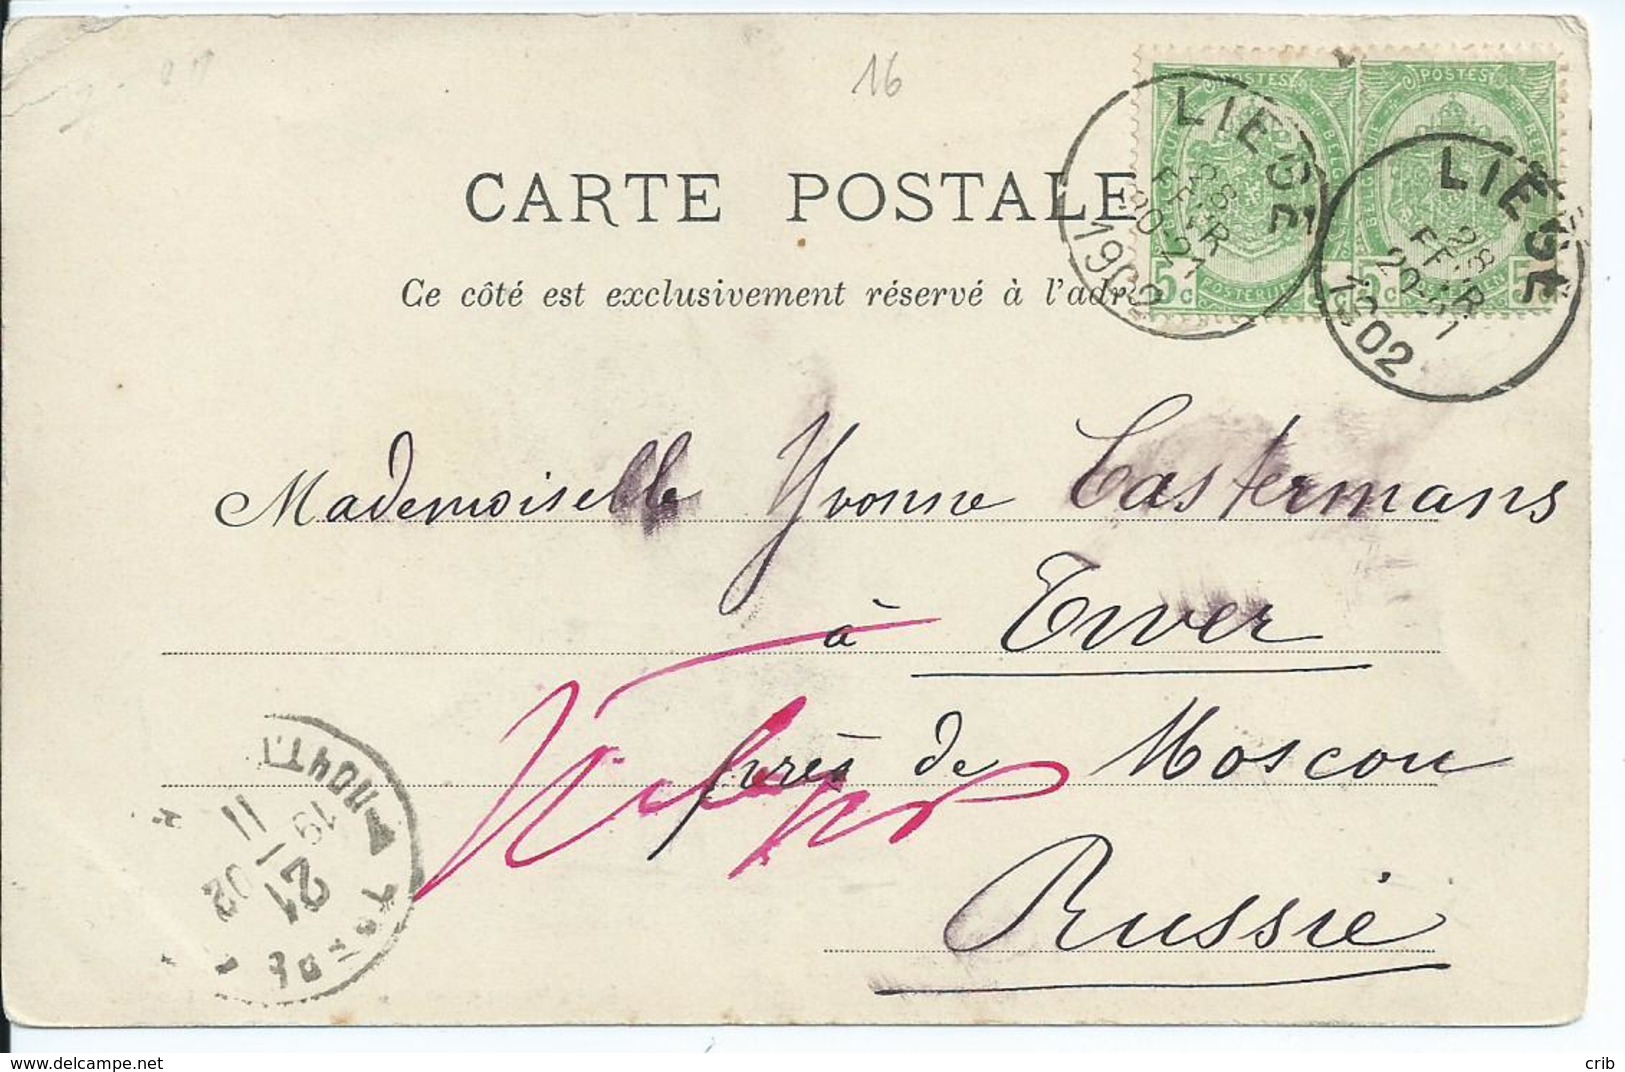 16
CARTE POSTALE
Ce côté est exclusivement réservé à l'adr
POSTES
POSTES
5c
5c
5c
POSTERIJEN
LIEGE
28
FEVR
20-21
1902
LIEGE
28
FEVR
20-21
1902
Mademoiselle Yvonne Castermans
à Twer
près de Moscou
Russie
ПОЧТ.
19 11 02
21
delcampe.net
crib